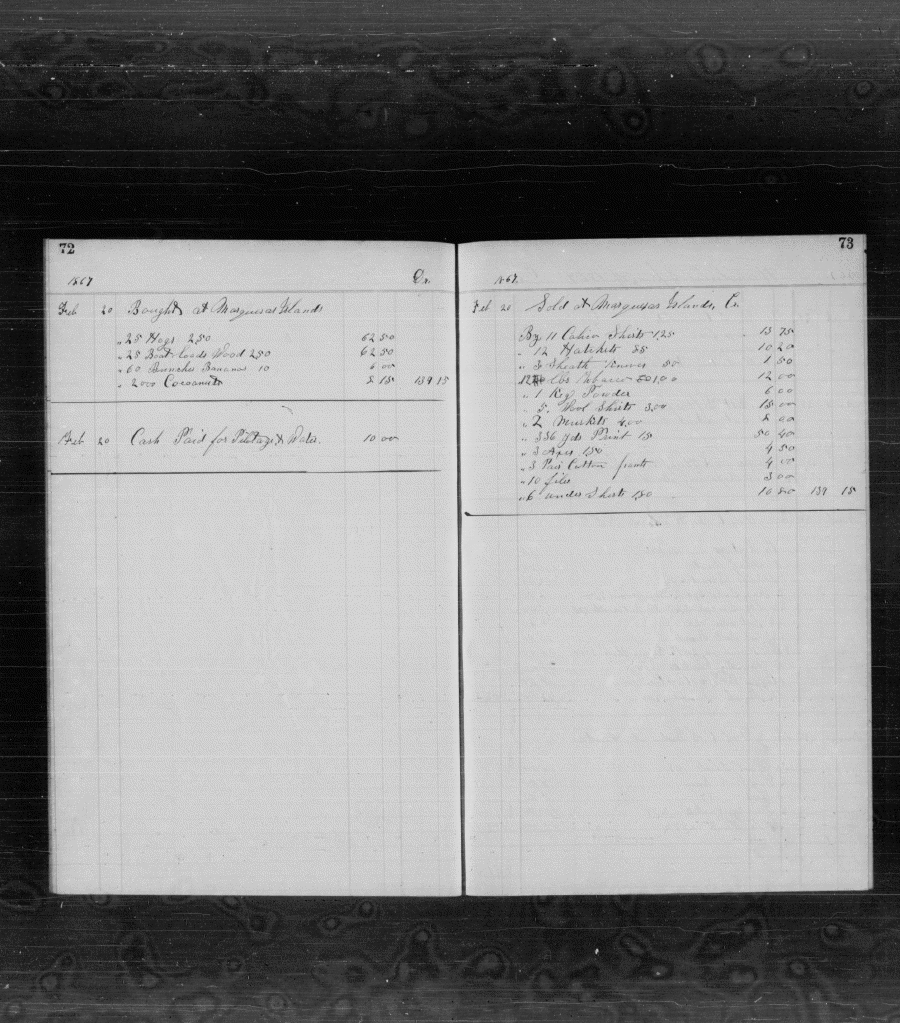 72
1867 Dr.
Feb 20 Bought at Marquesas Islands
" 25 Hogs 250 62 50
" 25 Boat loads Wood 250 62 50
" 60 Bunches Bananas 10 6 00
" 2000 Cocoanuts 8 15 139 15
Feb 20 Cash Paid for Pilotage & Water. 10 00
73
1867.
Feb 20 Sold at Marquesas Islands, Cr.
By 11 Calico Shirts 1,25 13 75
" 12 Hatchets 85 10 20
" 3 Sheath Knives 50 1 50
12 lbs Tabacco 1,00 12 00
" 1 Keg Powder 6 00
" 5. Wool Shirts 3,00 15 00
" 2 Muskets 4,00 8 00
" 336 yds Print 15 50 40
" 3 Axes 1,50 4 50
" 3 Pair Cotton pants 4 00
" 10 files 3 00
" 6 under Shirts 1,80 10 80 139 15